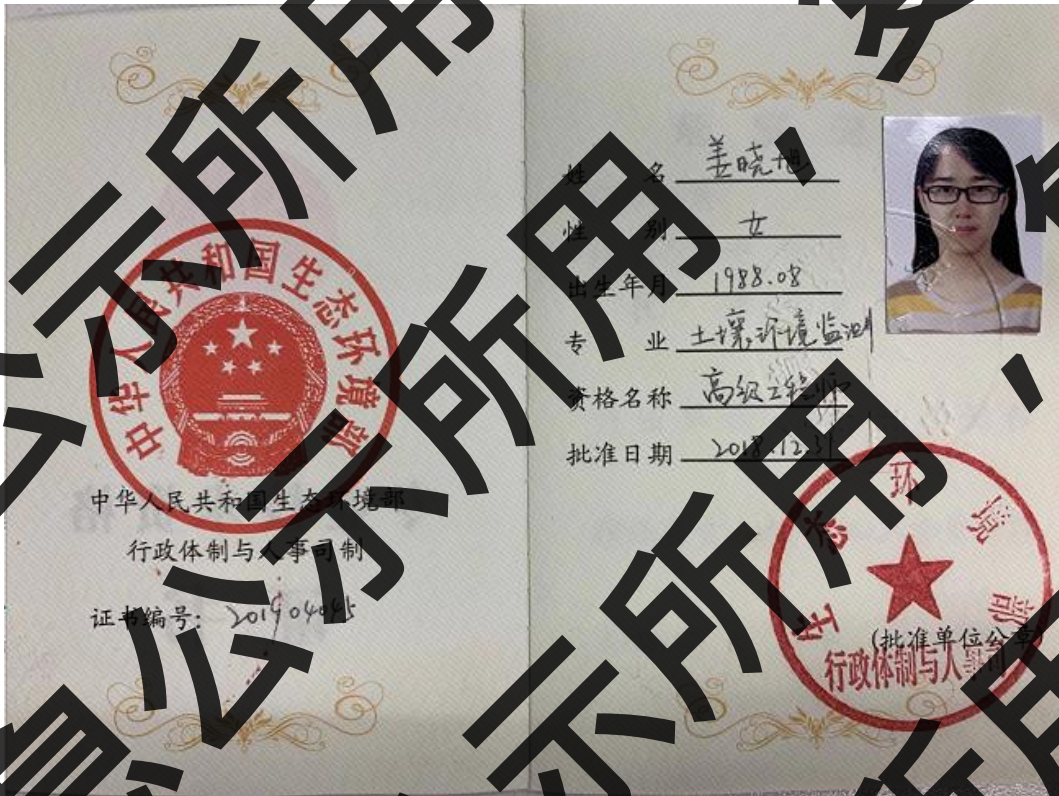 中华人民共和国生态环境部
中华人民共和国生态环境部
行政体制与人事司制
证书编号: 201904045
姓 名 姜晓旭
性 别 女
出生年月 1988.08
专 业 土壤环境监测
资格名称 高级工程师
批准日期 2018.12.31
生态环境部
(批准单位公章)
行政体制与人事司
公示所用,
息公示所用,
示所用